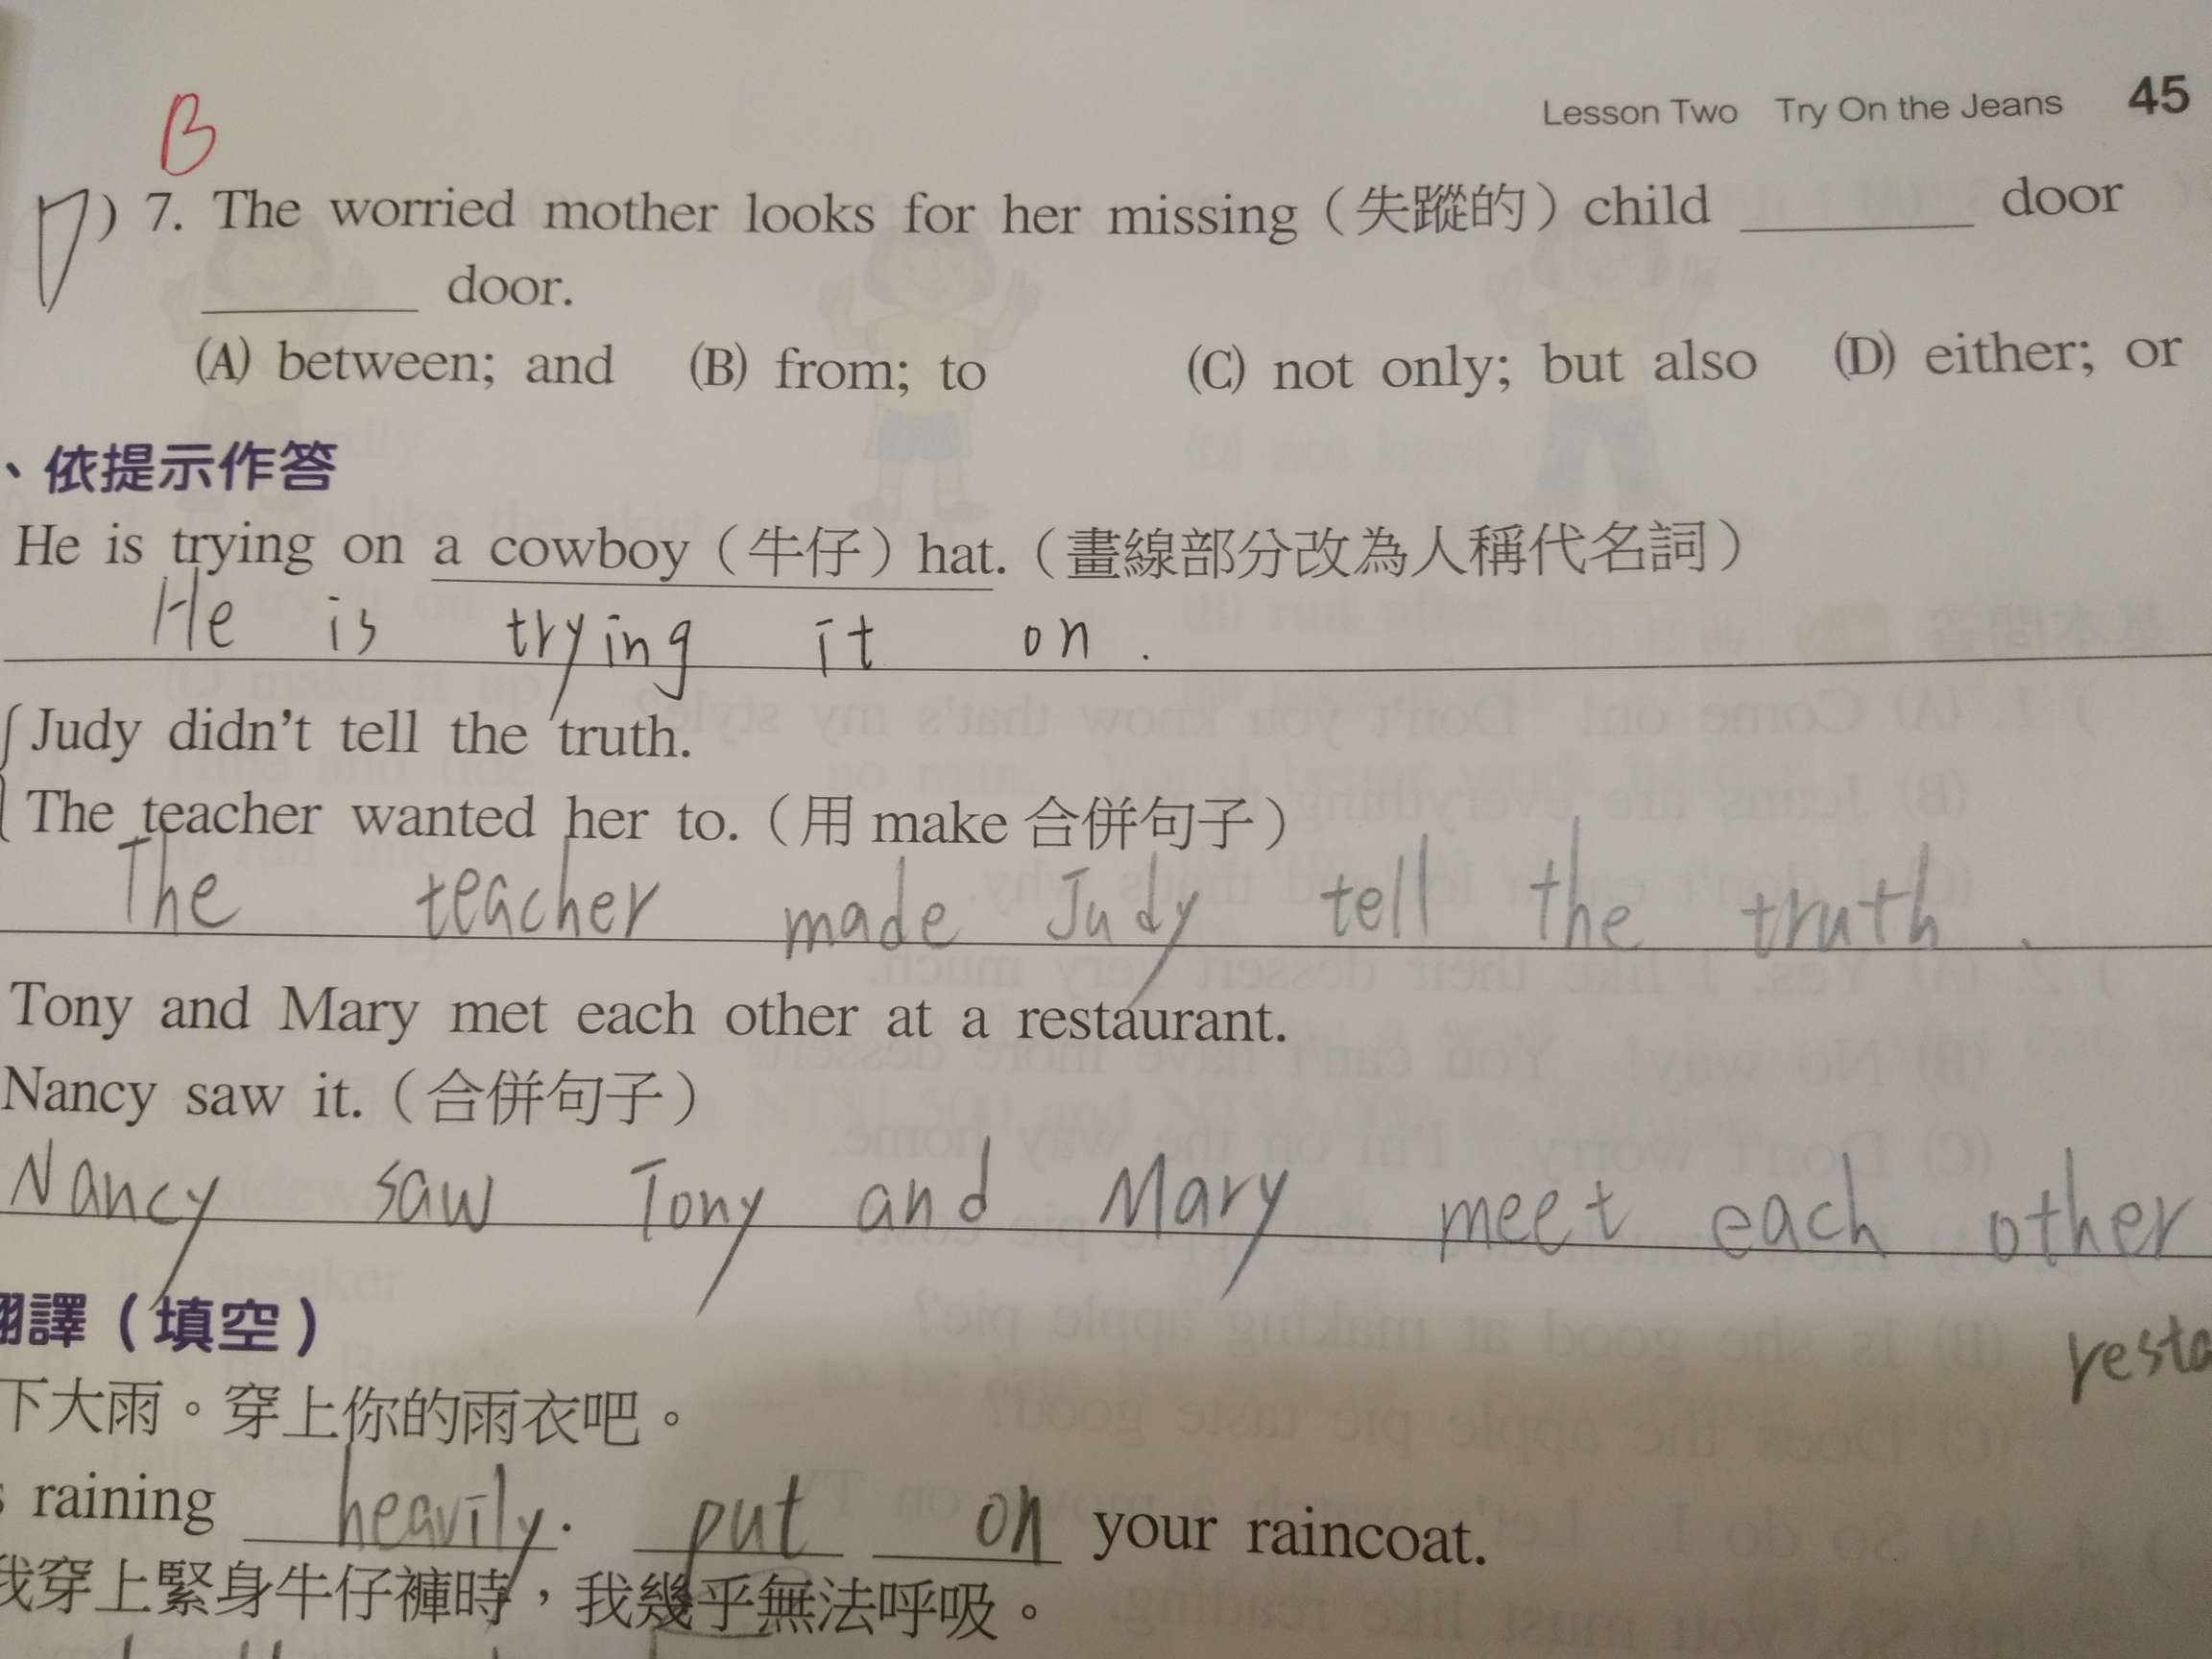 Lesson Two Try On the Jeans 45
B
D) 7. The worried mother looks for her missing（失蹤的）child ______ door
______ door.
(A) between; and (B) from; to (C) not only; but also (D) either; or
、依提示作答
He is trying on a cowboy（牛仔）hat.（畫線部分改為人稱代名詞）
He is trying it on.
Judy didn't tell the truth.
The teacher wanted her to.（用 make 合併句子）
The teacher made Judy tell the truth.
Tony and Mary met each other at a restaurant.
Nancy saw it.（合併句子）
Nancy saw Tony and Mary meet each other
翻譯（填空）
resta
下大雨。穿上你的雨衣吧。
s raining heavily. put on your raincoat.
我穿上緊身牛仔褲時，我幾乎無法呼吸。